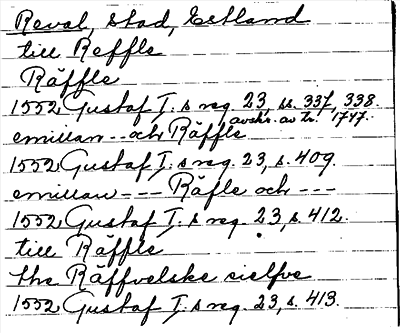 Reval, stad, Estland
till Reffle
Räffle
1552 Gustaf I:s reg. 23, ss. 337, 338.
avskr. av tr. 1747.
emillan -- och Räffle
1552 Gustaf I:s reg. 23, s. 409.
emillan --- Räfle och ---
1552 Gustaf I:s reg. 23, s. 412.
till Räffle
the Räffvelske sielfve
1552 Gustaf I:s reg. 23, s. 413.